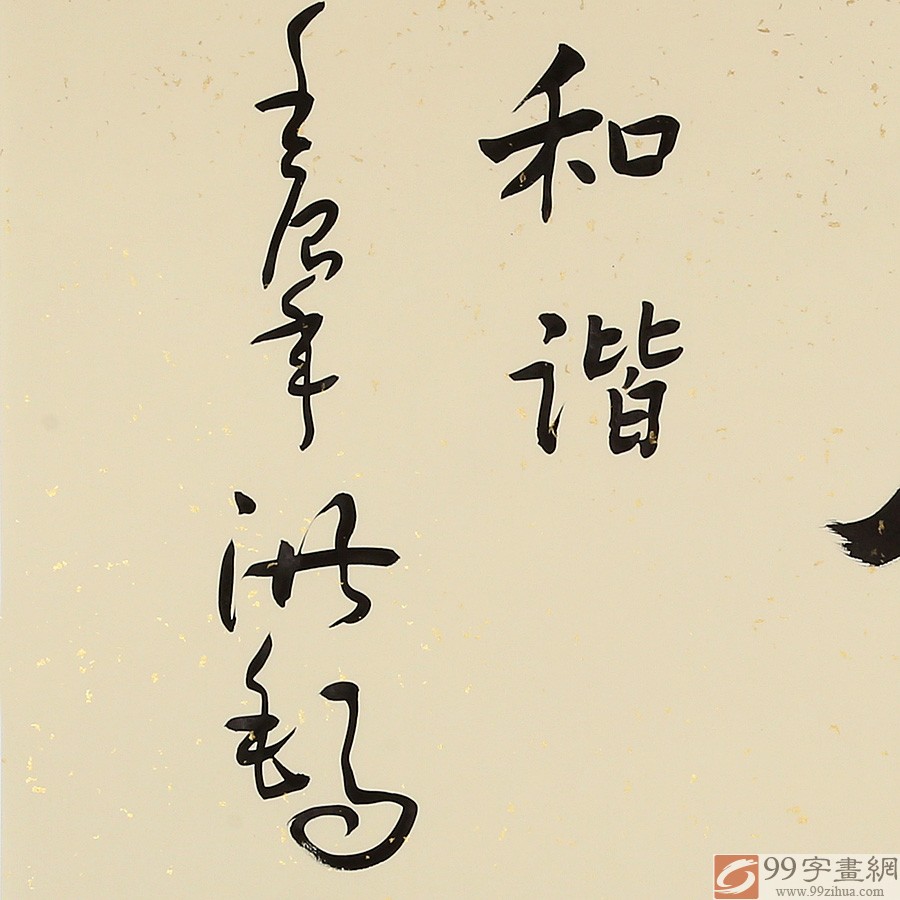 和谐
壬辰年 洪
99字畫網
www.99zihua.com